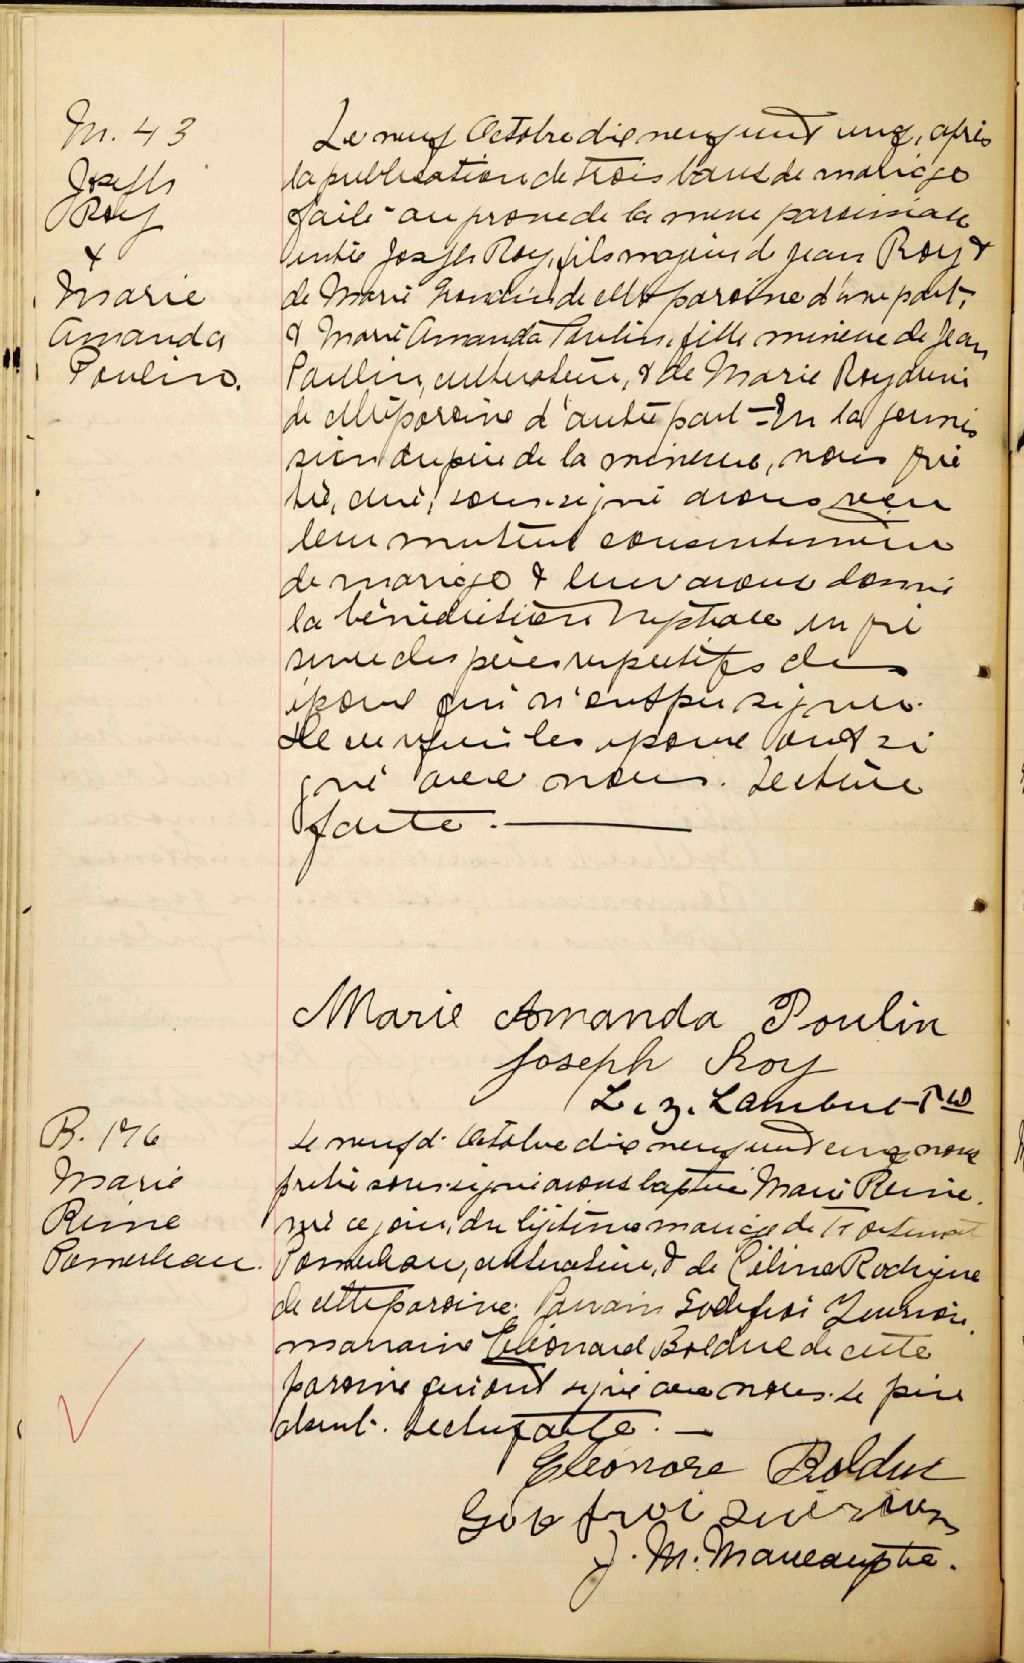 M. 43
Joseph
Roy
&
Marie
Amanda
Poulin.
Le neuf Octobre dix neuf cent cinq, après
la publication de trois bans de mariage
faite au prone de la messe paroissiale
entre Joseph Roy, fils majeur de Jean Roy &
de Marie de cette paroisse d'une part,
& Marie Amanda Poulin, fille mineure de Jean
Poulin, cultivateur, & de Marie Roy aussi
de cette paroisse d'autre part – Vu la permis
sion du père de la mineure, nous prê
tre, curé, soussigné avons reçu
leur mutuel consentement
de mariage & leur avons donné
la bénédiction nuptiale en pré
sence des pères respectifs des
époux qui n'ont pu signer.
Ce en quoi les époux ont si
gné avec nous. Lecture
faite.
Marie Amanda Poulin
Joseph Roy
L. Z. Lambert Ptre
B. 176
Marie
Reine
Pomerleau.
Le neuf d'Octobre dix neuf cent cinq nous
prêtre soussigné avons baptisé Marie Reine.
née ce jour, du légitime mariage de
Pomerleau, cultivateur, & de Céline Rodrigue
de cette paroisse. Parrain Godefroi
marraine Eléonard Bolduc de cette
paroisse qui ont signé avec nous. Le père
absent. Lecture faite. –
Eléonore Bolduc
J. M.